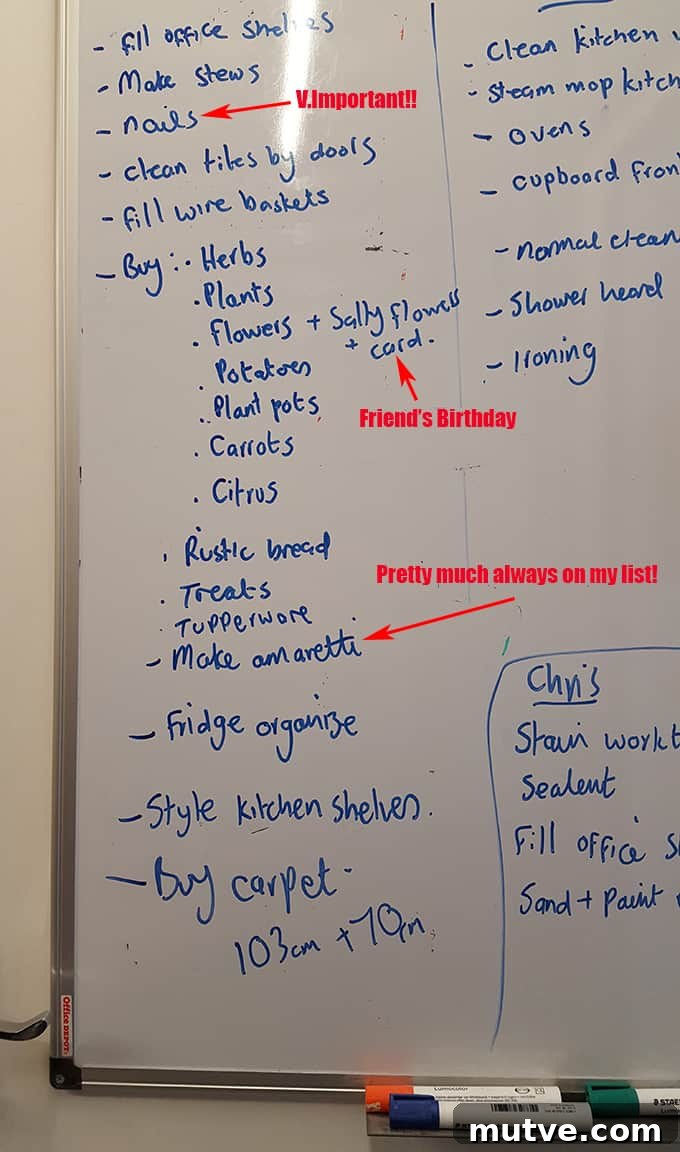 - fill office shelves
- Make stews
V.Important!!
- nails
- clean tiles by doors
- fill wire baskets
- Buy : . Herbs
. Plants
. Flowers + Sally flowers
+ card.
. Potatoes
Friend's Birthday
. Plant pots
. Carrots
. Citrus
. Rustic bread
Pretty much always on my list!
. Treats
. Tupperware
- Make amaretti
- Fridge organize
- Style kitchen shelves.
- Buy carpet -
103cm + 70cm
- Clean kitchen
- Steam mop kitch
- ovens
- cupboard fron
- normal clean
- Shower heard
- Ironing
Chris
Stain workt
Sealent
Fill office s
Sand + Paint
Office DEPOT
Lumocolor
STAE
mutve.com